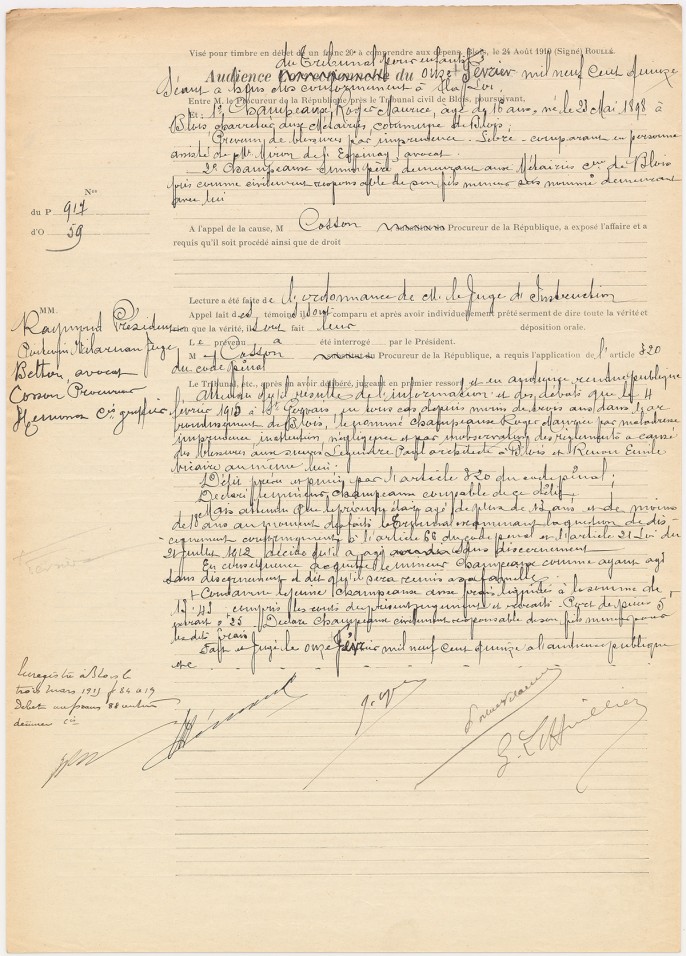 Visé pour timbre en débet de un franc 20c à comprendre aux dépens. Blois, le 24 Août 1910 (Signé) ROULLÉ.
du Tribunal pour enfants
Audience Correctionnelle du onze Février mil neuf cent quinze
Séant à huis clos conformément à la Loi
Entre M. le Procureur de la République près le Tribunal civil de Blois, poursuivant,
Et : 1° Champeaux, Roger Maurice, âgé de 16 ans, né le 23 Mai 1898 à
Blois, aux Métairies, commune de Blois,
Prévenu de blessures par imprudence. Libre - comparant en personne
assisté de Me Miron de l'Espinay, avocat.
2° Champeaux père demeurant aux Métairies cne de Blois
pris comme civilement responsable de son fils mineur sus nommé demeurant
avec lui
Nos
du P 917
d'O 59
A l'appel de la cause, M Cosson Substitut du Procureur de la République, a exposé l'affaire et a
requis qu'il soit procédé ainsi que de droit
Lecture a été faite de l'ordonnance de M. le Juge d'Instruction
Appel fait des témoins ils ont comparu et après avoir individuellement prêté serment de dire toute la vérité et
rien que la vérité, ils ont fait leur déposition orale.
Le prévenu a été interrogé par le Président.
M Cosson Substitut du Procureur de la République, a requis l'application de l'article 320
du code pénal
MM.
Raymond Président
Juge
Betton, avocat
Cosson, Procureur
cis greffier
Le Tribunal, etc., après en avoir délibéré, jugeant en premier ressort et en audience rendue publique
Attendu qu'il résulte de l'information et des débats que le 4
février 1915 à St Gervais, en tous cas depuis moins de trois ans dans l'ar
rondissement de Blois, le nommé Champeaux Roger Maurice par maladresse
imprudence inattention, négligence et par inobservation des règlements a causé
des blessures aux sieurs Legendre Paul architecte à Blois et Renou Emile
vicaire au même lieu :
Délit prévu et puni par l'article 320 du code pénal ;
Déclare le mineur Champeaux coupable de ce délit
Mais attendu que le prévenu étant âgé de plus de 13 ans et de moins
de 18 ans au moment des faits le Tribunal examinant la question de dis-
cernement conformément à l'article 66 du code pénal et l'article 21 Loi du
22 juillet 1912 décide qu'il a agi sans discernement
En conséquence acquitte le mineur Champeaux comme ayant agi
sans discernement et dit qu'il sera remis à sa famille
Condamne le jeune Champeaux aux frais liquidés à la somme de
compris les coûts du présent jugement et
Déclare Champeaux civilement responsable de son fils mineur pour
les dits frais
Fait et Jugé le onze Février mil neuf cent quinze à l'audience publique
etc
Enregistré à Blois le
trois mars 1915 f 84 c 19